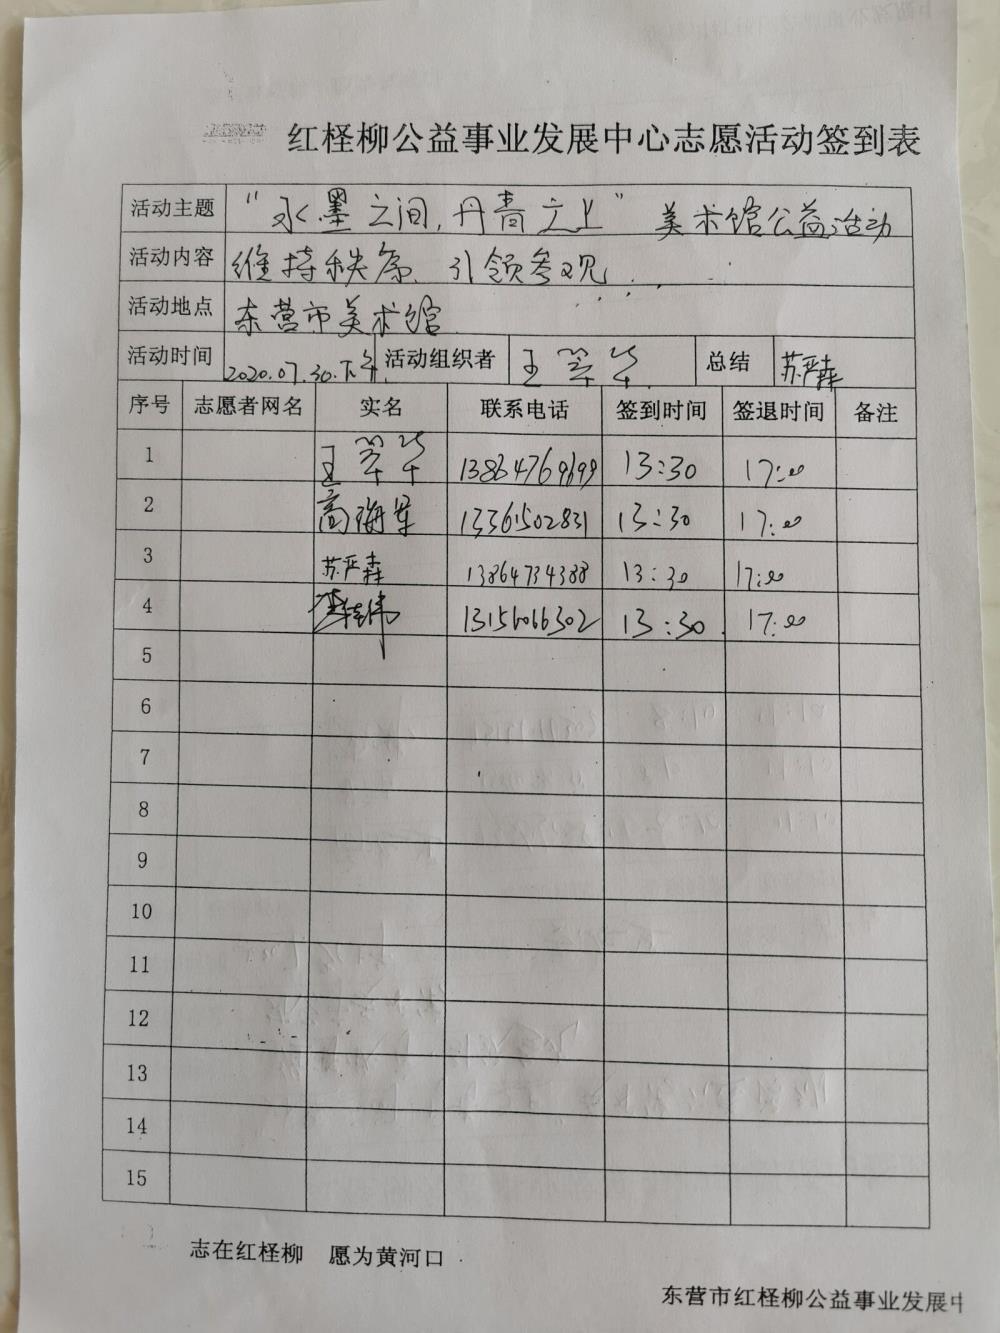 红柽柳公益事业发展中心志愿活动签到表
活动主题 “水墨之间,丹青之上” 美术馆公益活动
活动内容 维持秩序、引领参观
活动地点 东营市美术馆
活动时间 2020.07.30.下午 活动组织者 王翠华 总结 苏严森
序号 志愿者网名 实名 联系电话 签到时间 签退时间 备注
1 王翠华 13:30 17:00
2 高海军 13361502831 13:30 17:00
3 苏严森 13864734388 13:30 17:00
4 13156066302 13:30 17:00
5
6
7
8
9
10
11
12
13
14
15
志在红柽柳 愿为黄河口
东营市红柽柳公益事业发展中